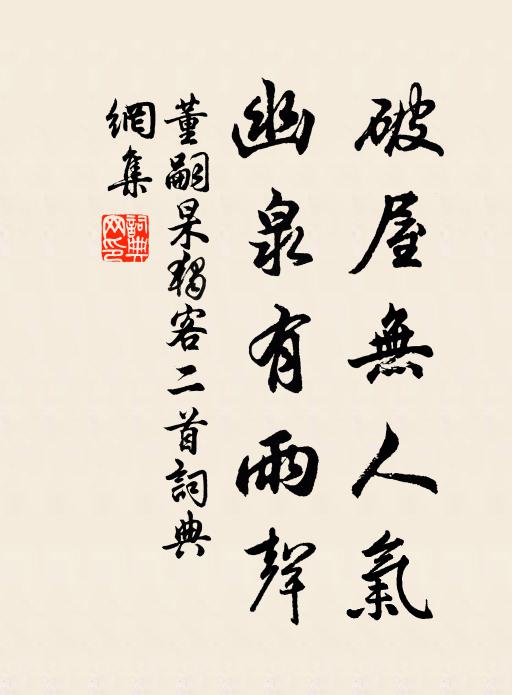 破屋無人氣
幽泉有雨聲
董嗣杲獨客二首詞典
網集
詞典網印